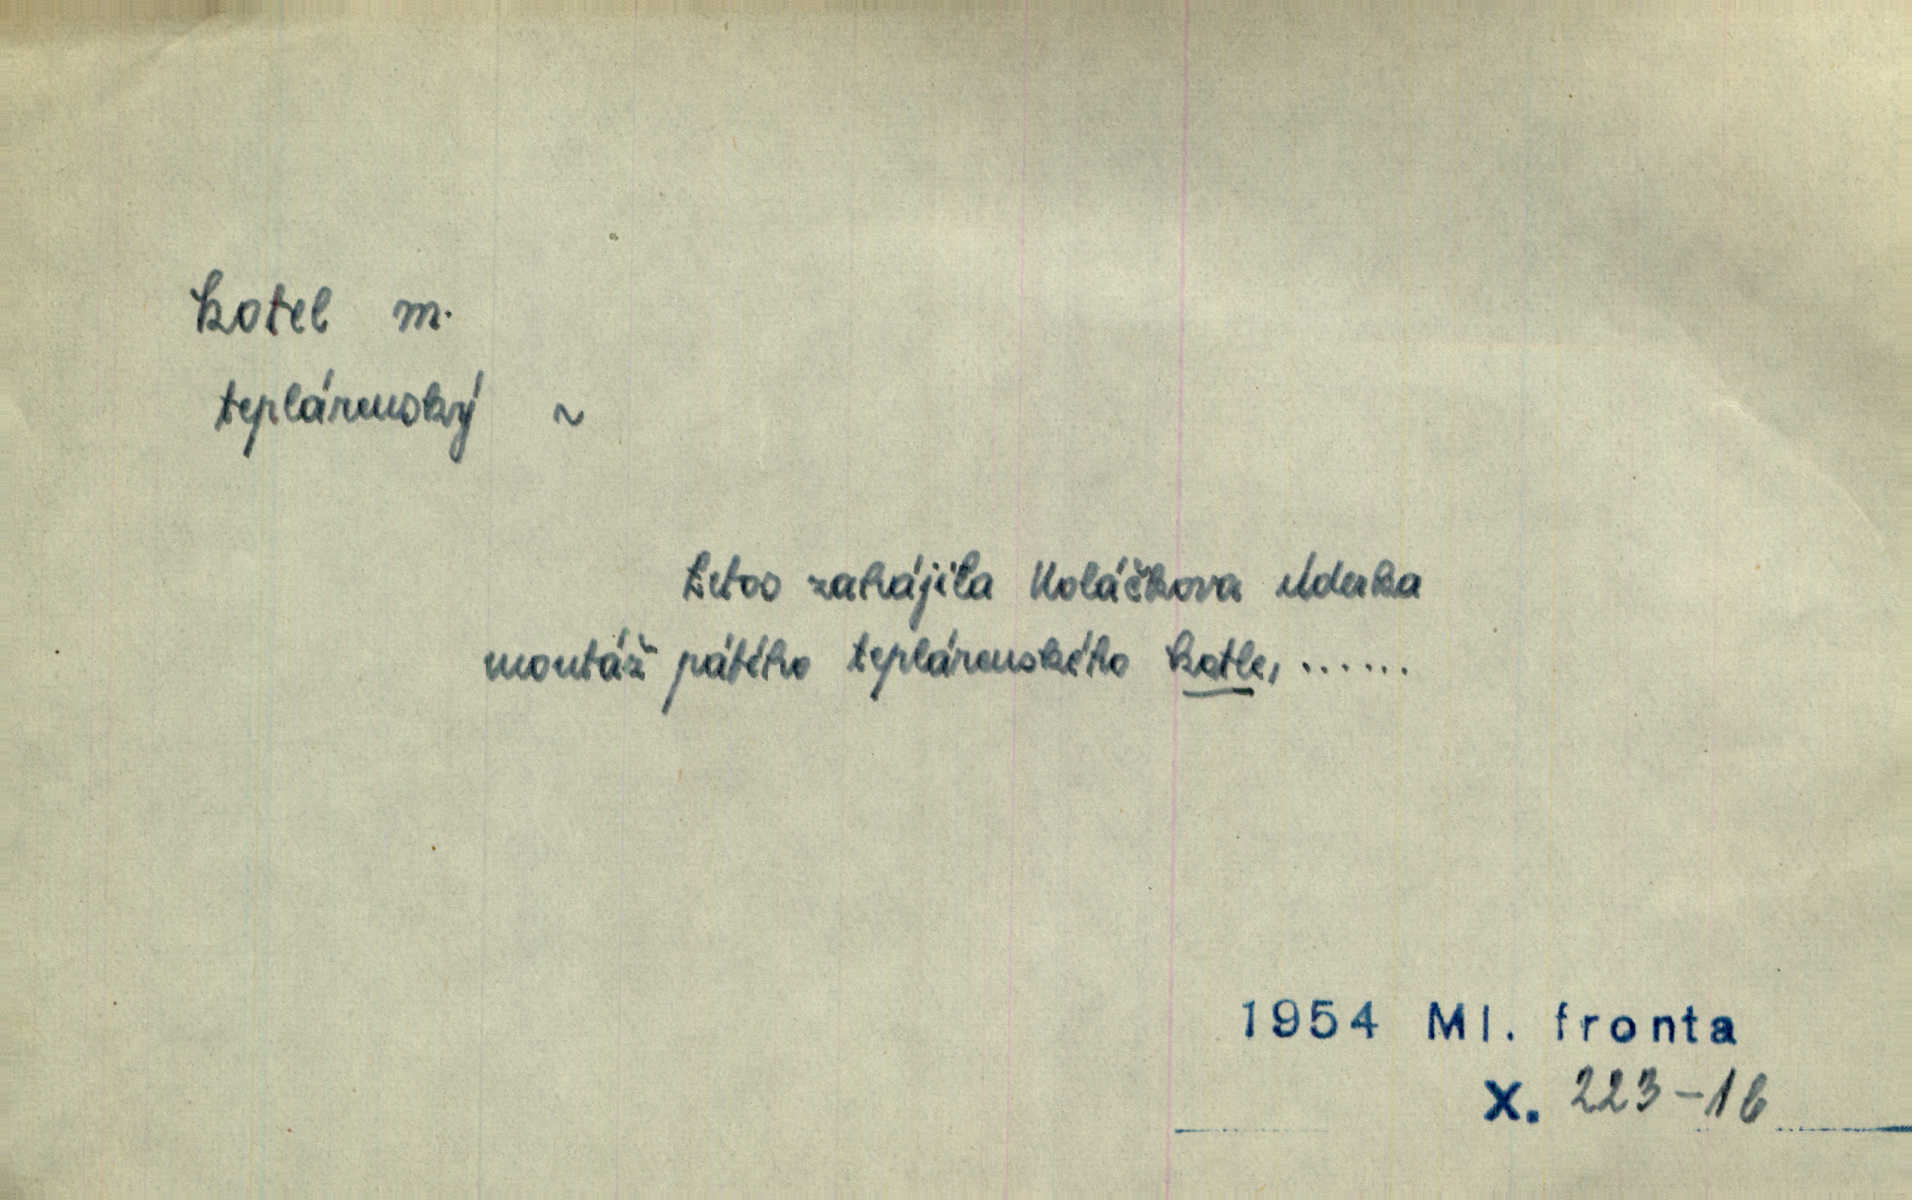 kotel m.
teplárenský ~
Letos zahájila Koláčkova úderka
montáž pátého teplárenského kotle, ......
1954 Ml. fronta
X. 223-1b